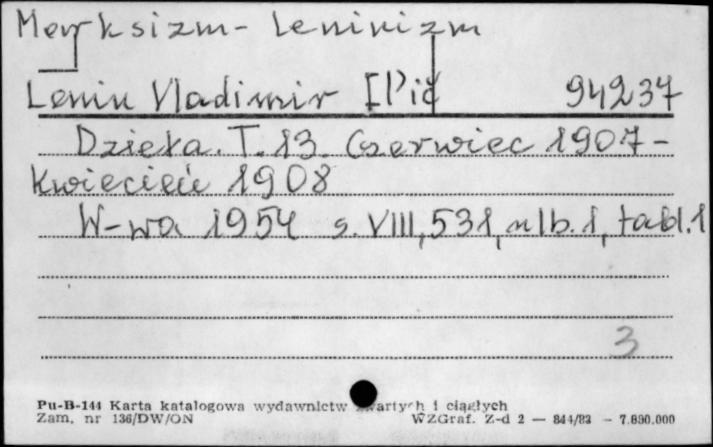 Marksizm-Leninizm
Lenin Vladimir Il'ič 94237
Dzieła. T. 13. Czerwiec 1907-
kwiecień 1908
W-wa 1954 s. VIII, 531, nlb. 1, tabl. 1
3
Pu-B-144 Karta katalogowa wydawnictw zwartych i ciągłych
Zam. nr 136/DW/ON WZGraf. Z-d 2 — 844/83 — 7.890.000